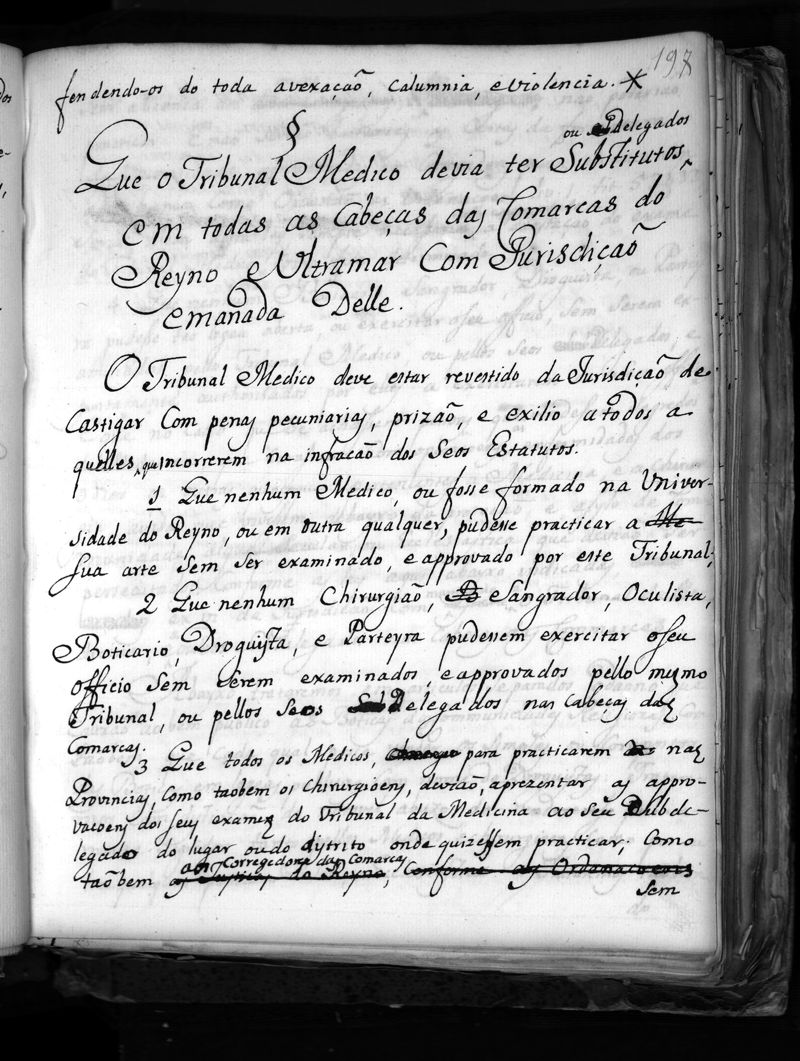 197
fendendo-os do toda avexaçaõ, calumnia, e violencia. *
§
ou Delegados
Que o Tribunal Medico devia ter Substitutos,
em todas as Cabeças das Comarcas do
Reyno e Ultramar Com Jurisdiçaõ
emanada Delle.
O Tribunal Medico deve estar revestido da Jurisdiçaõ de
Castigar Com penas pecuniarias, prizaõ, e exilio a todos a
quelles, que incorrerem na infracaõ dos Seos Estatutos.
1 Que nenhum Medico, ou fosse formado na Univer-
sidade do Reyno, ou em outra qualquer, pudesse practicar a Me
sua arte Sem Ser examinado, e approvado por este Tribunal;
2 Que nenhum Chirurgiaõ, e Sangrador, Oculista,
Boticario, Droguista, e Parteyra pudessem exercitar o seu
officio Sem Serem examinados, e approvados pello mesmo
Tribunal, ou pellos Seos Delegados nas Cabeças das
Comarcas.
3 Que todos os Medicos, para practicarem nas
Provincias, Como taõbem os Chirurgioens, deviaõ, aprezentar as appro-
vacoens dos seus exames do Tribunal da Medicina ao Seu Subde-
legado do lugar ou do distrito onde quizessem practicar; Como
aos Corregedores das Comarcas
taõbem as Justiças do Reyno, Conforme as Ordenacoens
Sem